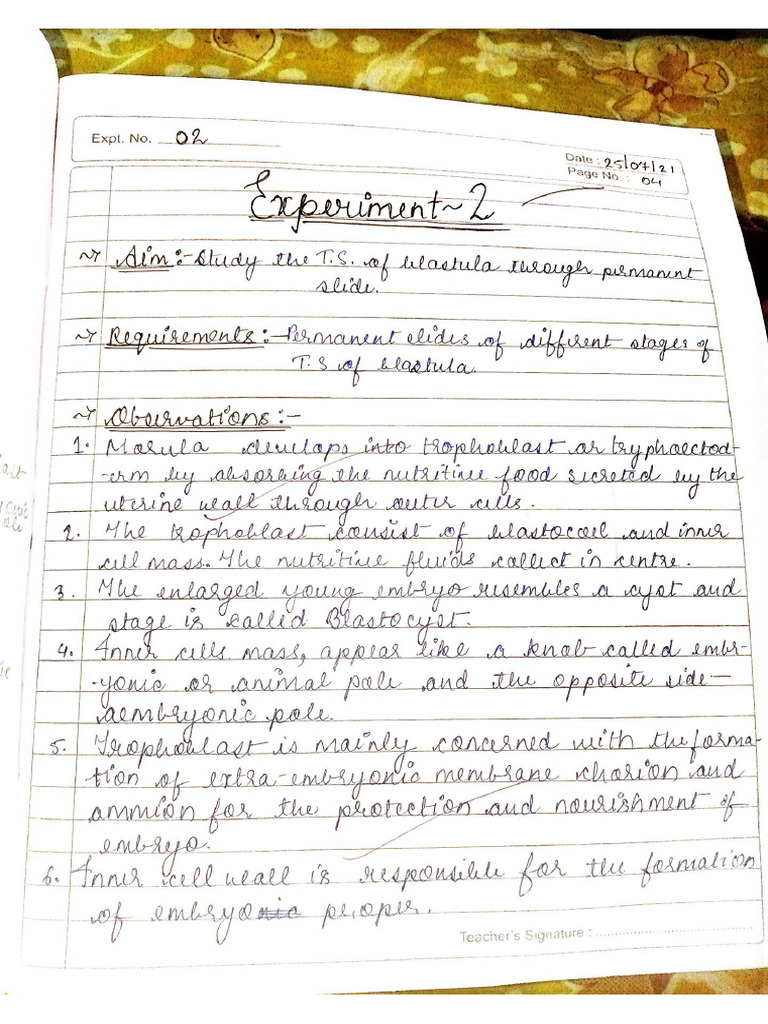 Expt. No. 02
Date : 25/07/21
Page No. : 04
Experiment~2
~> Aim:- Study the T.S. of blastula through permanent
slide.
~> Requirements:- Permanent slides of different stages of
T.S of blastula.
~> Observations:-
1. Morula develops into trophoblast or tryphoectod-
-erm by absorbing the nutritive food secreted by the
uterine wall through outer cells.
2. The trophoblast consist of blastocoel and inner
cell mass. The nutritive fluids collect in centre.
3. The enlarged young embryo resembles a cyst and
stage is called Blastocyst.
4. Inner cells mass, appear like a knob called embr-
-yonic or animal pole and the opposite side-
aembryonic pole.
5. Trophoblast is mainly concerned with the forma-
tion of extra-embryonic membrane chorion and
ammion for the protection and nourishment of
embryo.
6. Inner cell wall is responsible for the formation
of embryonic proper.
Teacher's Signature :